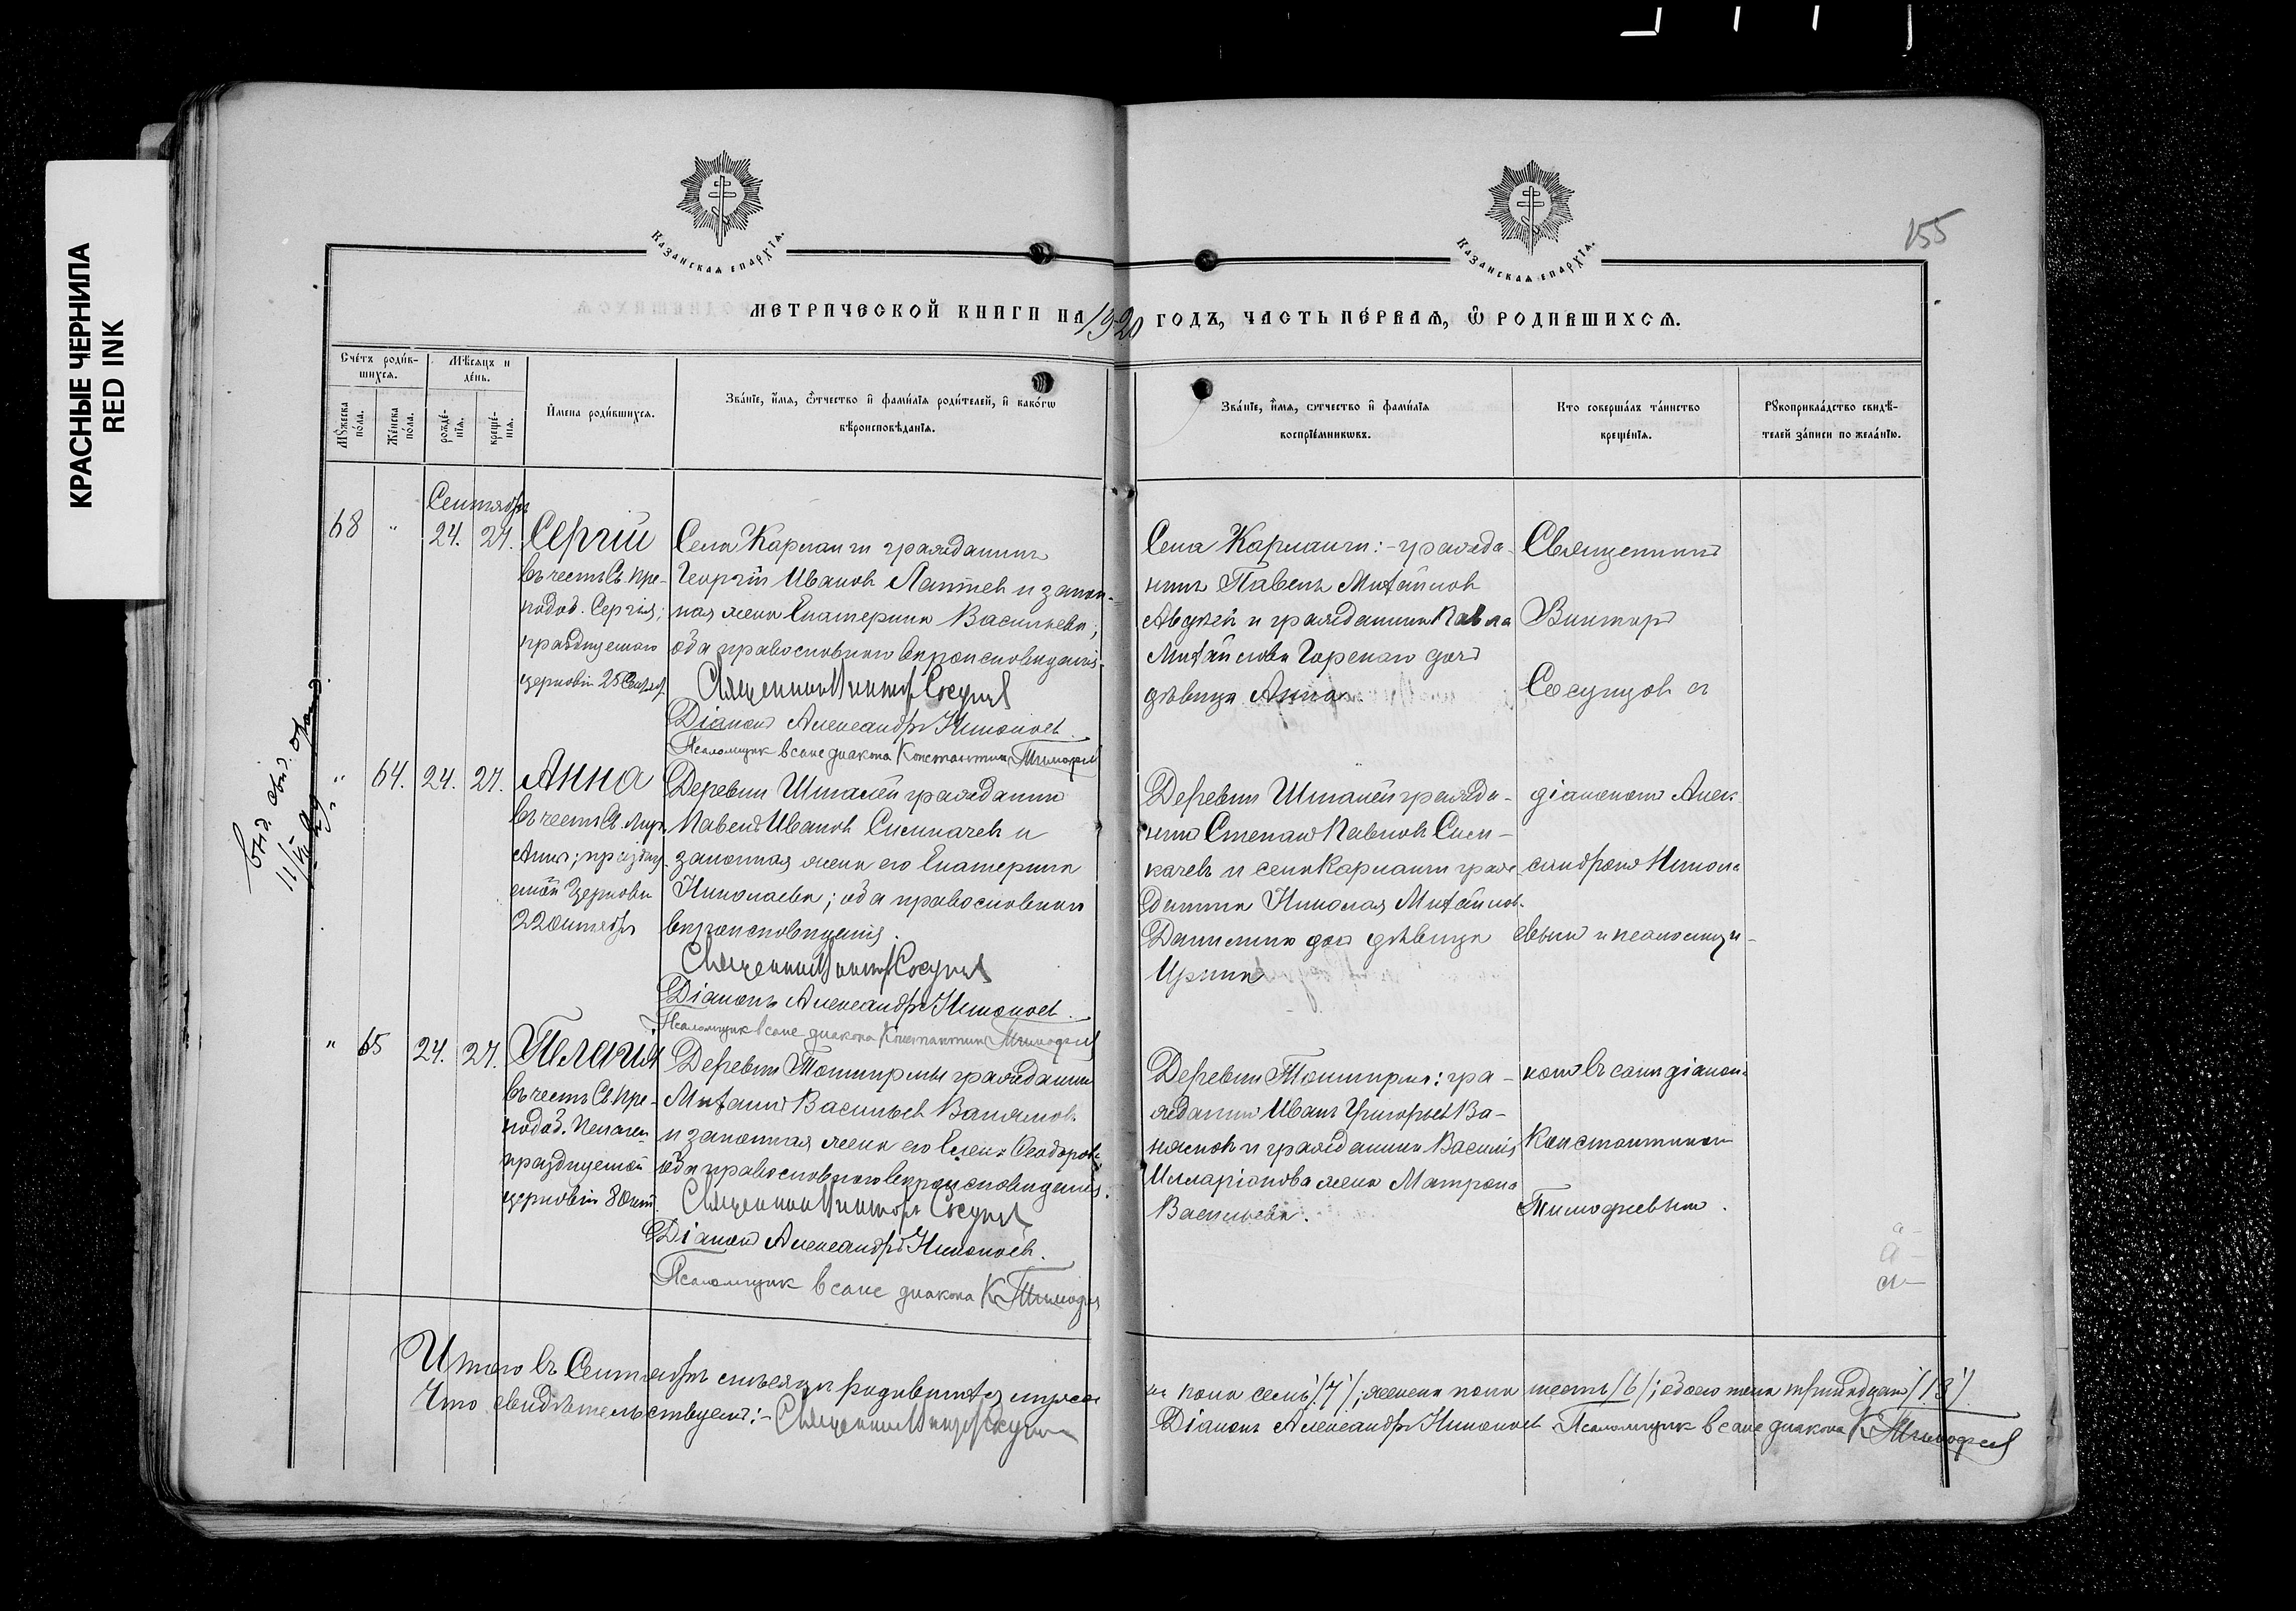 КРАСНЫЕ ЧЕРНИЛА
RED INK
155
Казанская епархїа.
Казанская епархїа.
МЕТРИЧЕСКОЙ КНИГИ НА 1920 ГОДЪ, ЧАСТЬ ПЕ́РВАѦ, Ѽ РОДИВШИХСѦ.
Сче́тъ роди́в-
шихсѧ.
Мѣ́сѧцъ и
де́нь.
Мꙋ́жеска
по́ла.
Же́нска
пола.
рожде́-
нїѧ.
креще́-
нїѧ.
И҆́мена роди́вшихсѧ.
Зва́нїе, и҆́мѧ, ѻ҆́тчество и҆ фами́лїѧ роди́телей, и҆ како́гѡ
вѣ́роисповѣ́данїѧ.
Зва́нїе, и҆́мѧ, ѻтчество и҆ фами́лїѧ
воспрїе́мникѡвъ.
Кто соверша́лъ та́инство
креще́нїѧ.
Рꙋкоприкла́дство свидѣ́-
телей за́писи по жела́нїю.
Сентябрь
68 " 24. 27. Сергій
въ честь Св. Пре-
подоб. Сергія;
празднуемаго
церковію 25 Сентяб.
Села Кармалги гражданинъ
Георгій Ивановъ Лаптевъ и закон-
ная жена Екатерина Васильева;
оба православнаго вѣроисповѣданія.
Священникъ Викторъ
Діаконъ Александръ Николаевъ.
Псаломщик в сане диакона Константин Тимофеев
Села Кармалги: - гражда-
нинъ Павелъ Михайловъ
и гражданина Павла
Михайлова дочь
дѣвица Анна.
Священникъ
Викторъ
и
" 64. 24. 27. Анна
въ честь Св.
Анны; праздну-
емой Церковью
22 октября
Деревни гражданинъ
Павелъ Ивановъ и
законная жена его Екатерина
Николаева; оба православнаго
вѣроисповѣданія.
Священникъ Викторъ
Діаконъ Александръ Николаевъ.
Псаломщик в сане диакона Константин Тимофеев
Деревни гражда-
нинъ Степанъ Павловъ
и села Кармалги граж-
данина Николая Михайлова
дочь дѣвица
Ирина
діакономъ Алек-
сандромъ Никола-
евымъ и псаломщи-
" 65 24. 27. Пелагія
въ честь Св. Пре-
подоб. Пелагеи
празднуемой
церковію 8 Окт.
Деревни гражданинъ
Михаилъ Васильевъ
и законная жена его Елена Ѳеодорова
оба православнаго вѣроисповѣданія.
Священникъ Викторъ
Діаконъ Александръ Николаевъ.
Псаломщик в сане диакона К Тимофеев
Деревни гра-
жданинъ Иванъ Григорьевъ Ва-
и гражданина Василія
Илларіонова жена Матрона
Васильева.
комъ въ санѣ діакона
Константиномъ
Тимофеевымъ.
Итого въ Сентябрѣ мѣсяцѣ родившихся мужска-
го пола семь /7/; женска пола шесть /6/; обоего пола тринадцать /13/
Что свидѣтельствуемъ: - Священникъ Викторъ
Діаконъ Александръ Николаевъ Псаломщик в сане диакона К Тимофеев